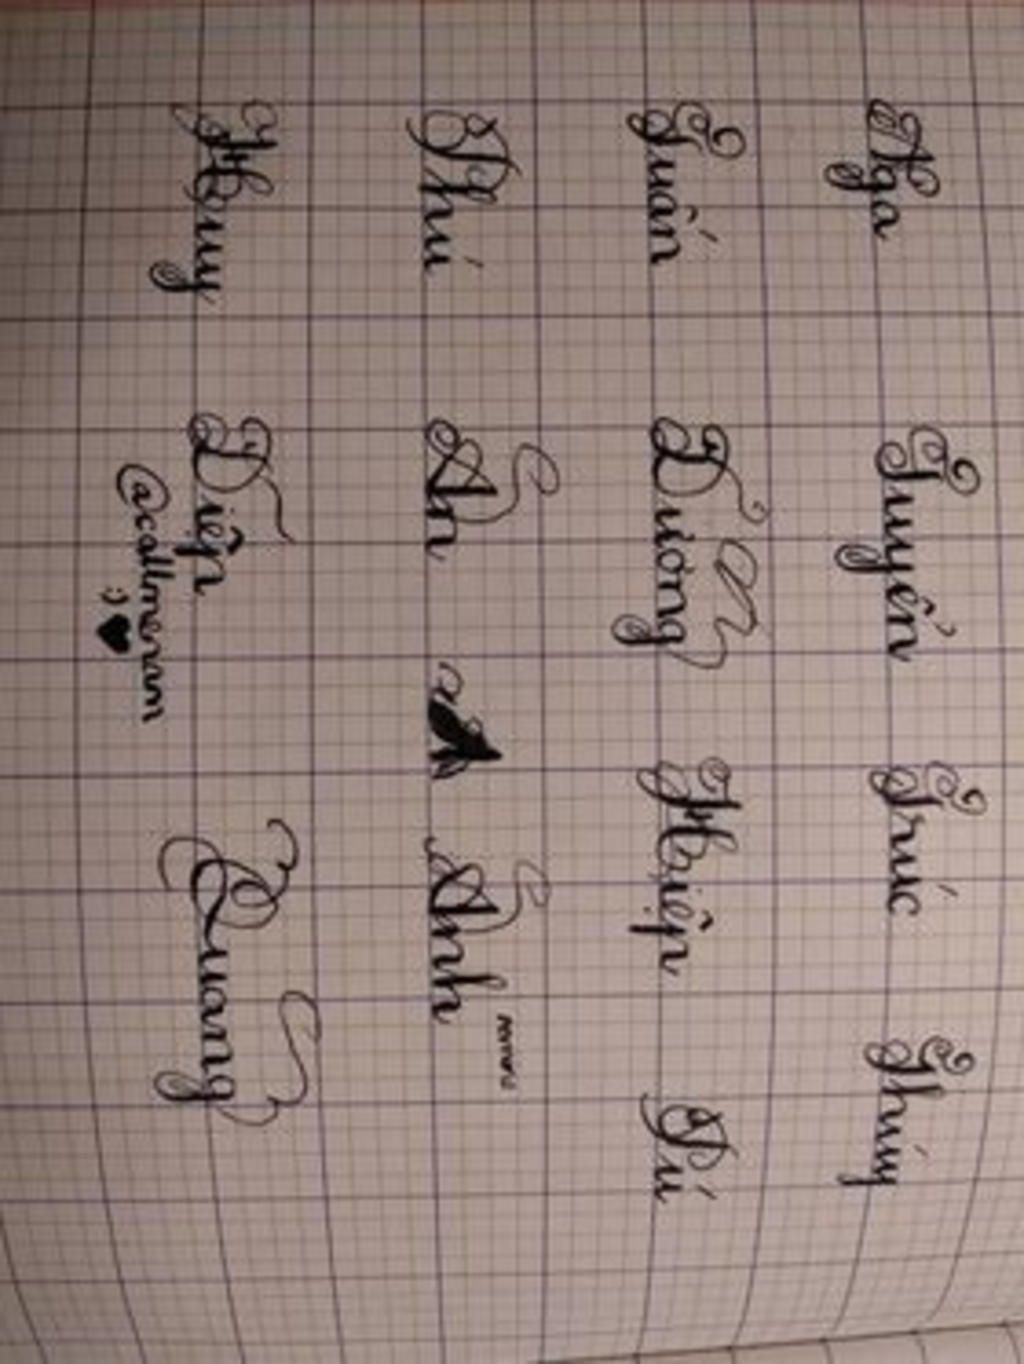 Nga Tuyển Trúc Thúy
Tuấn Dương Hiệp Tú
Phú Ân Ánh
Huy Diệp Quang
@callmenam
:) ♥